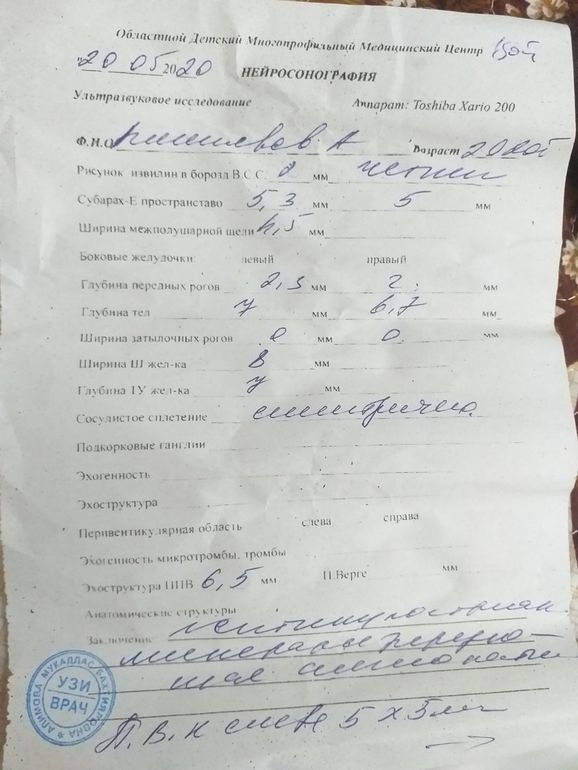 Областной Детский Многопрофильный Медицинский Центр
"20 05 2020 НЕЙРОСОНОГРАФИЯ
Ультразвуковое исследование Аппарат: Toshiba Xario 200
Ф.И.О А Возраст
Рисунок извилин в борозд В.С.С. мм четкий
Субарах-Е пространставо 5,3 мм 5 мм
Ширина межполушарной щели 4,5 мм
Боковые желудочки: левый правый
Глубина передных рогов 2,3 мм 2. мм
Глубина тел 7 мм 6,7 мм
Ширина затылочных рогов 0 мм 0. мм
Ширина Ш жел-ка 8 мм
Глубина 1У жел-ка 7 мм
Сосулистое сплетение симметрично.
Подкорковые ганглии
Эхогенность
Эхоструктура
Перивентикулярная область слева справа
Эхогенность микротромбы, тромбы
Эхоструктура ППВ 6,5 мм П.Верге мм
Анатомические структуры
Заключение
П.В.К слева 5 х 5 мм
АЛИМОВА МУКАДДАС БАХТИЯРОВНА
УЗИ
ВРАЧ